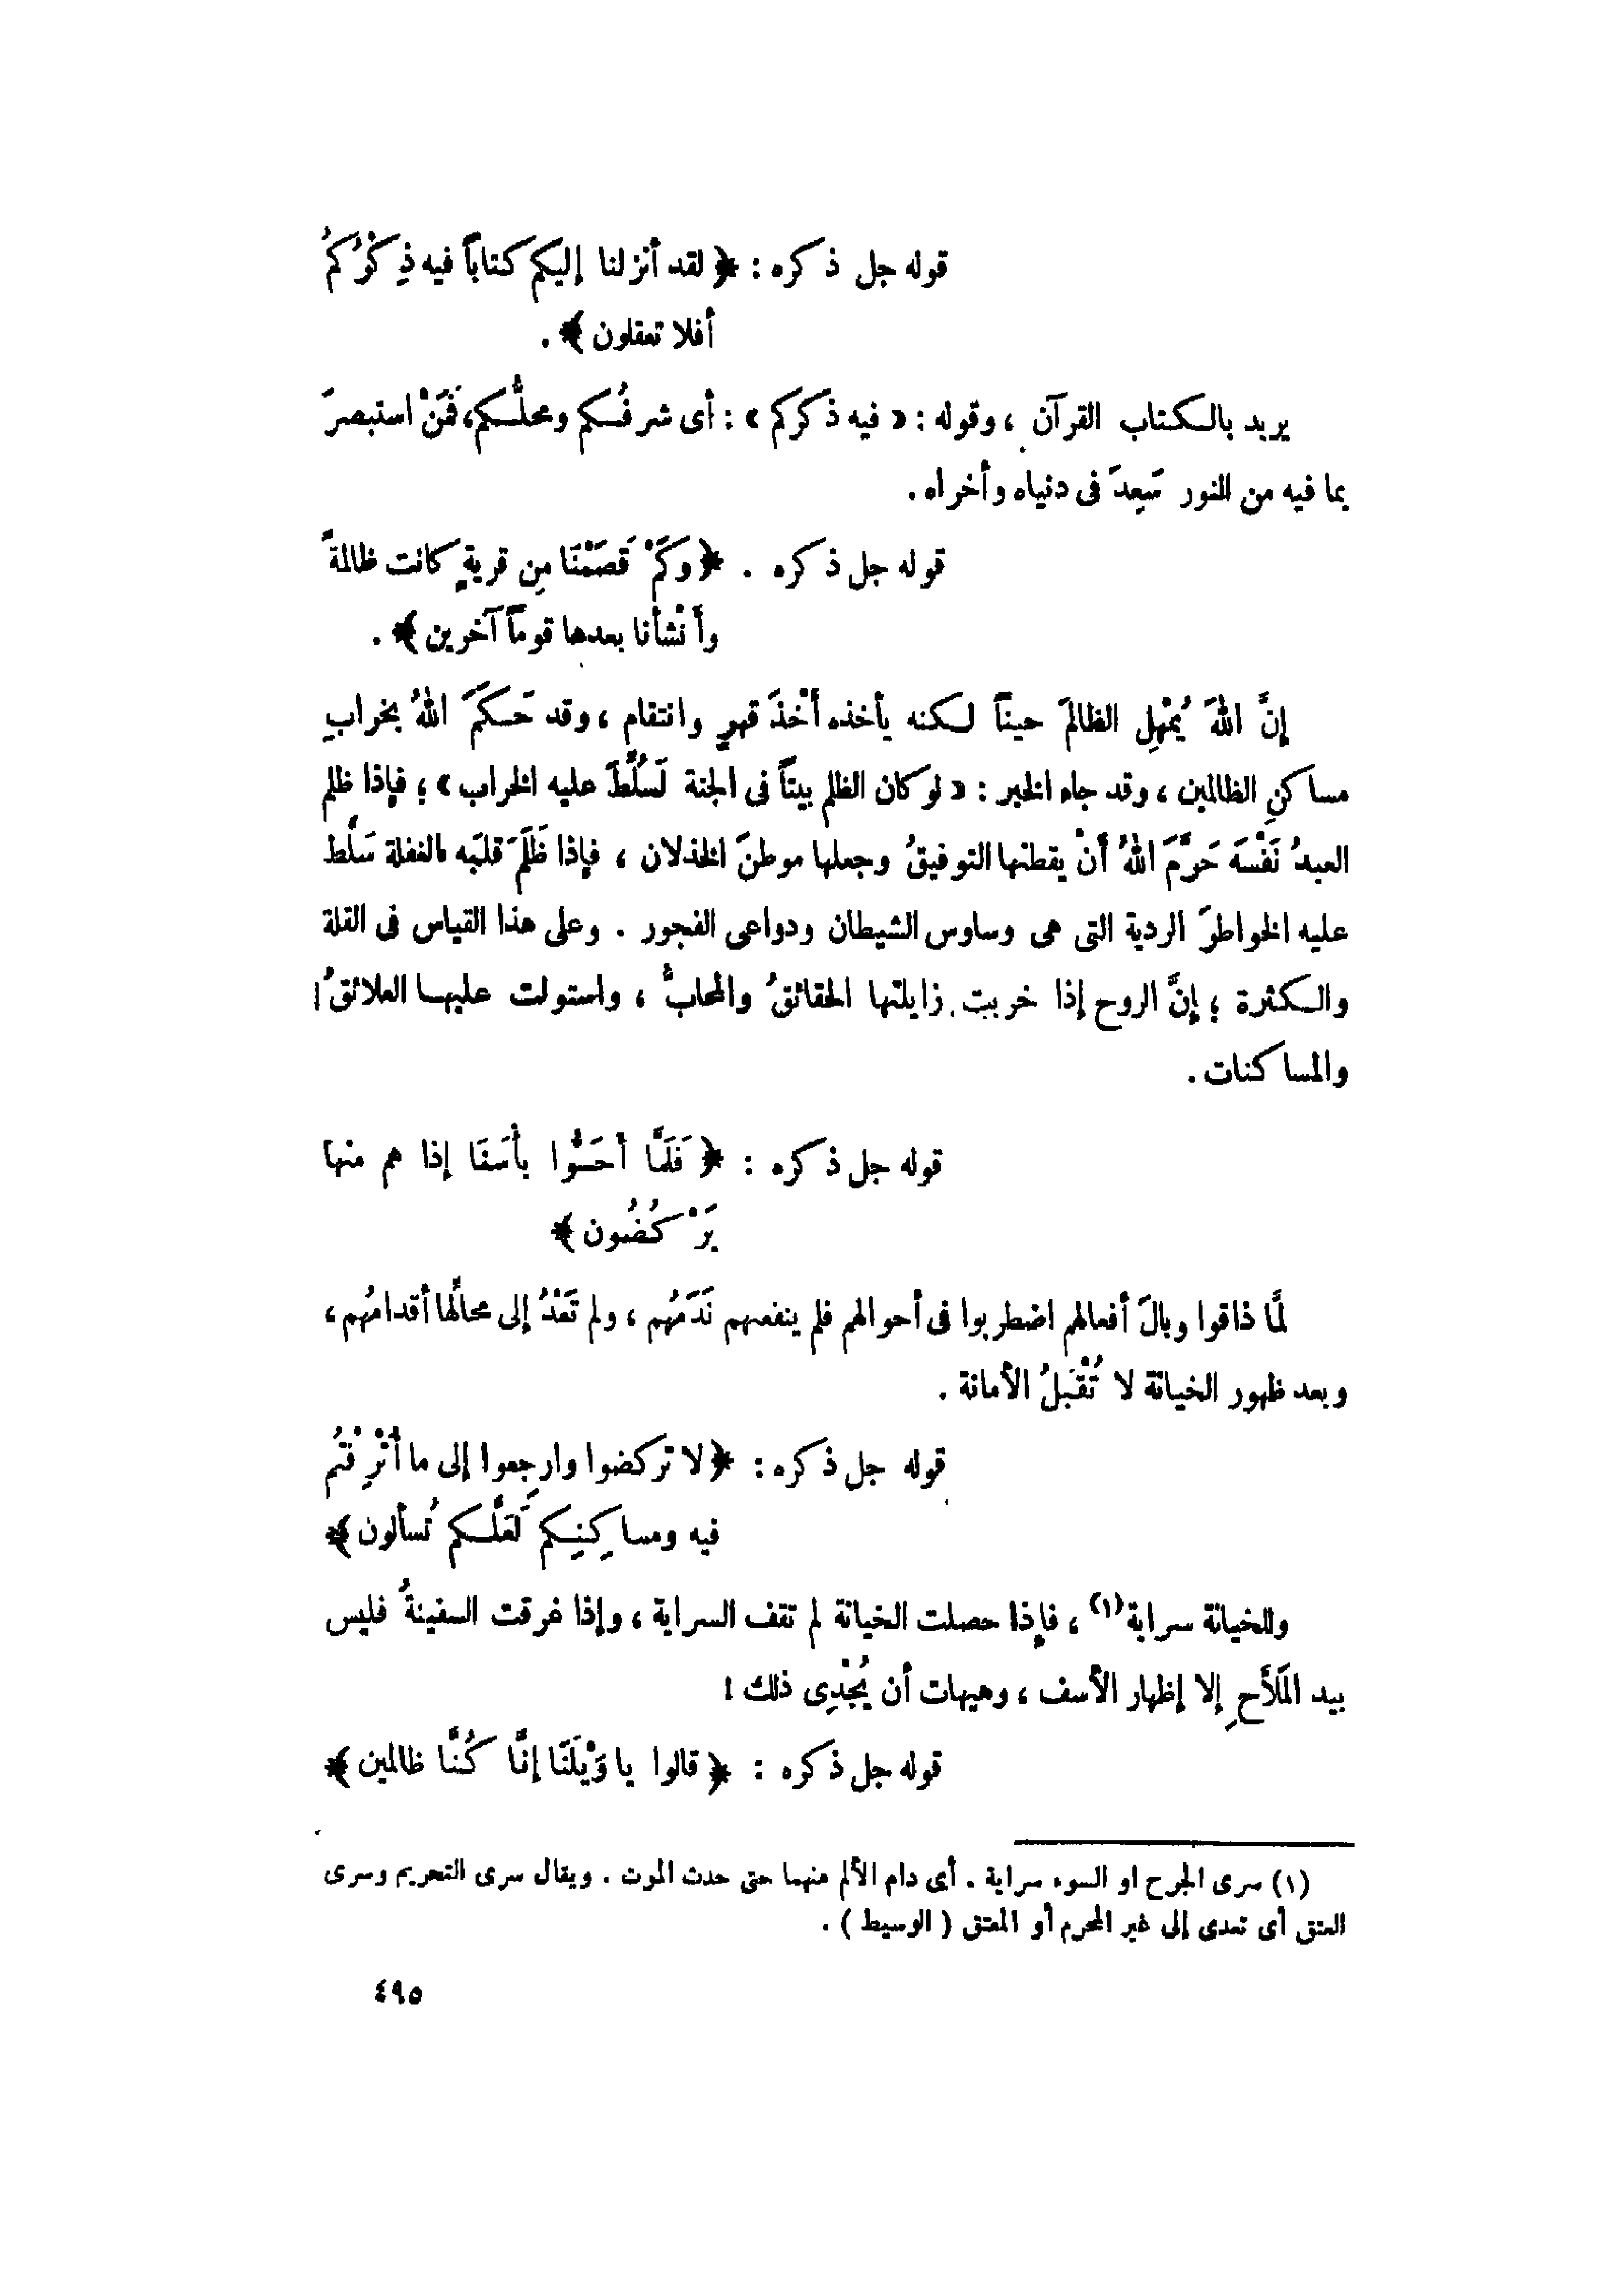 قوله جل ذكره : ﴿ لقد أنزلنا إليكم كتاباً فيه ذِكْرُكُمْ
أفلا تعقلون ﴾ .
يريد بالكتاب القرآن ، وقوله : « فيه ذكركم » : أى شرفُكم ومحلُّكم، فَمَنْ استبصرَ
بما فيه من النور سَعِدَ فى دنياه وأخراه .
قوله جل ذكره . ﴿ وكَمْ قَصَمْنَا مِن قريةٍ كانت ظالمةً
وأَنْشأنا بعدها قوماً آخرين ﴾ .
إنَّ اللهَ يُمْهِل الظالمَ حيناً لكنه يأخذه أَخْذَ قهرٍ وانتقام ، وقد حَكَمَ اللهُ بخرابِ
مساكنِ الظالمين ، وقد جاء الخبر : « لو كان الظلم بيتاً فى الجنة لَسُلِّطَ عليه الخراب » ؛ فإذا ظلم
العبدُ نَفْسَه حَرَّمَ اللهُ أنْ يقطنها التوفيقُ وجعلها موطنَ الخذلان ، فإذا ظَلَمَ قلبَه بالغفلة سَلَّط
عليه الخواطرَ الردية التى هى وساوس الشيطان ودواعى الفجور . وعلى هذا القياس فى القلة
والكثرة ؛ إنَّ الروح إذا خربت زايلتها الحقائقُ والمحابُّ ، واستولت عليها العلائقُ
والمساكنات .
قوله جل ذكره : ﴿ فَلَمَّا أحَسُّوا بأسَنَا إذا هم منها
يَرْكُضُون ﴾
لمَّا ذاقوا وبالَ أفعالهم اضطربوا فى أحوالهم فلم ينفعهم نَدَمُهُم ، ولم تَعُدْ إلى محالِّها أقدامُهُم ،
وبعد ظهور الخيانة لا تُقْبَلُ الأمانة .
قوله جل ذكره : ﴿ لا تركضوا وارجِعوا إلى ما أُتْرِفْتُم
فيه ومساكِنِكم لَعَلَّكم تُسألون ﴾
وللخيانة سراية(١) ، فإذا حصلت الخيانة لم تقف السراية ، وإذا غرقت السفينةُ فليس
بيد المَلَّاحِ إلا إظهار الأسف ، وهيهات أن يُجْدِى ذلك !
قوله جل ذكره : ﴿ قالوا يا وَيْلَنَا إنَّا كُنَّا ظالمين ﴾
(١) سرى الجرح او السوء سراية . أى دام الألم منهما حتى حدث الموت . ويقال سرى التحريم وسرى
العتق أى تعدى إلى غير المحرم أو المعتق ( الوسيط ) .
٤٩٥